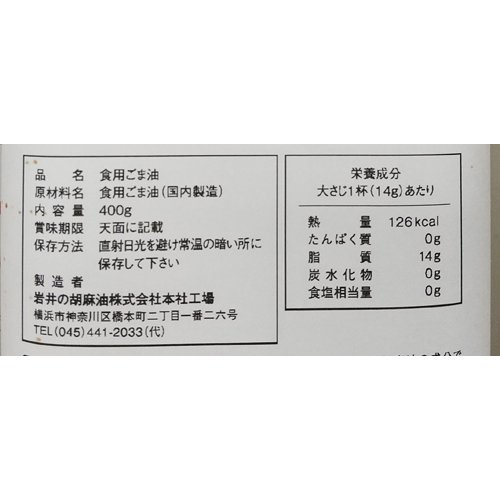 品名 食用ごま油
原材料名 食用ごま油(国内製造)
内容量 400g
賞味期限 天面に記載
保存方法 直射日光を避け常温の暗い所に
保存して下さい
製造者
岩井の胡麻油株式会社本社工場
横浜市神奈川区橋本町二丁目一番二六号
TEL(045)441-2033(代)
栄養成分
大さじ1杯(14g)あたり
熱量 126kcal
たんぱく質 0g
脂質 14g
炭水化物 0g
食塩相当量 0g